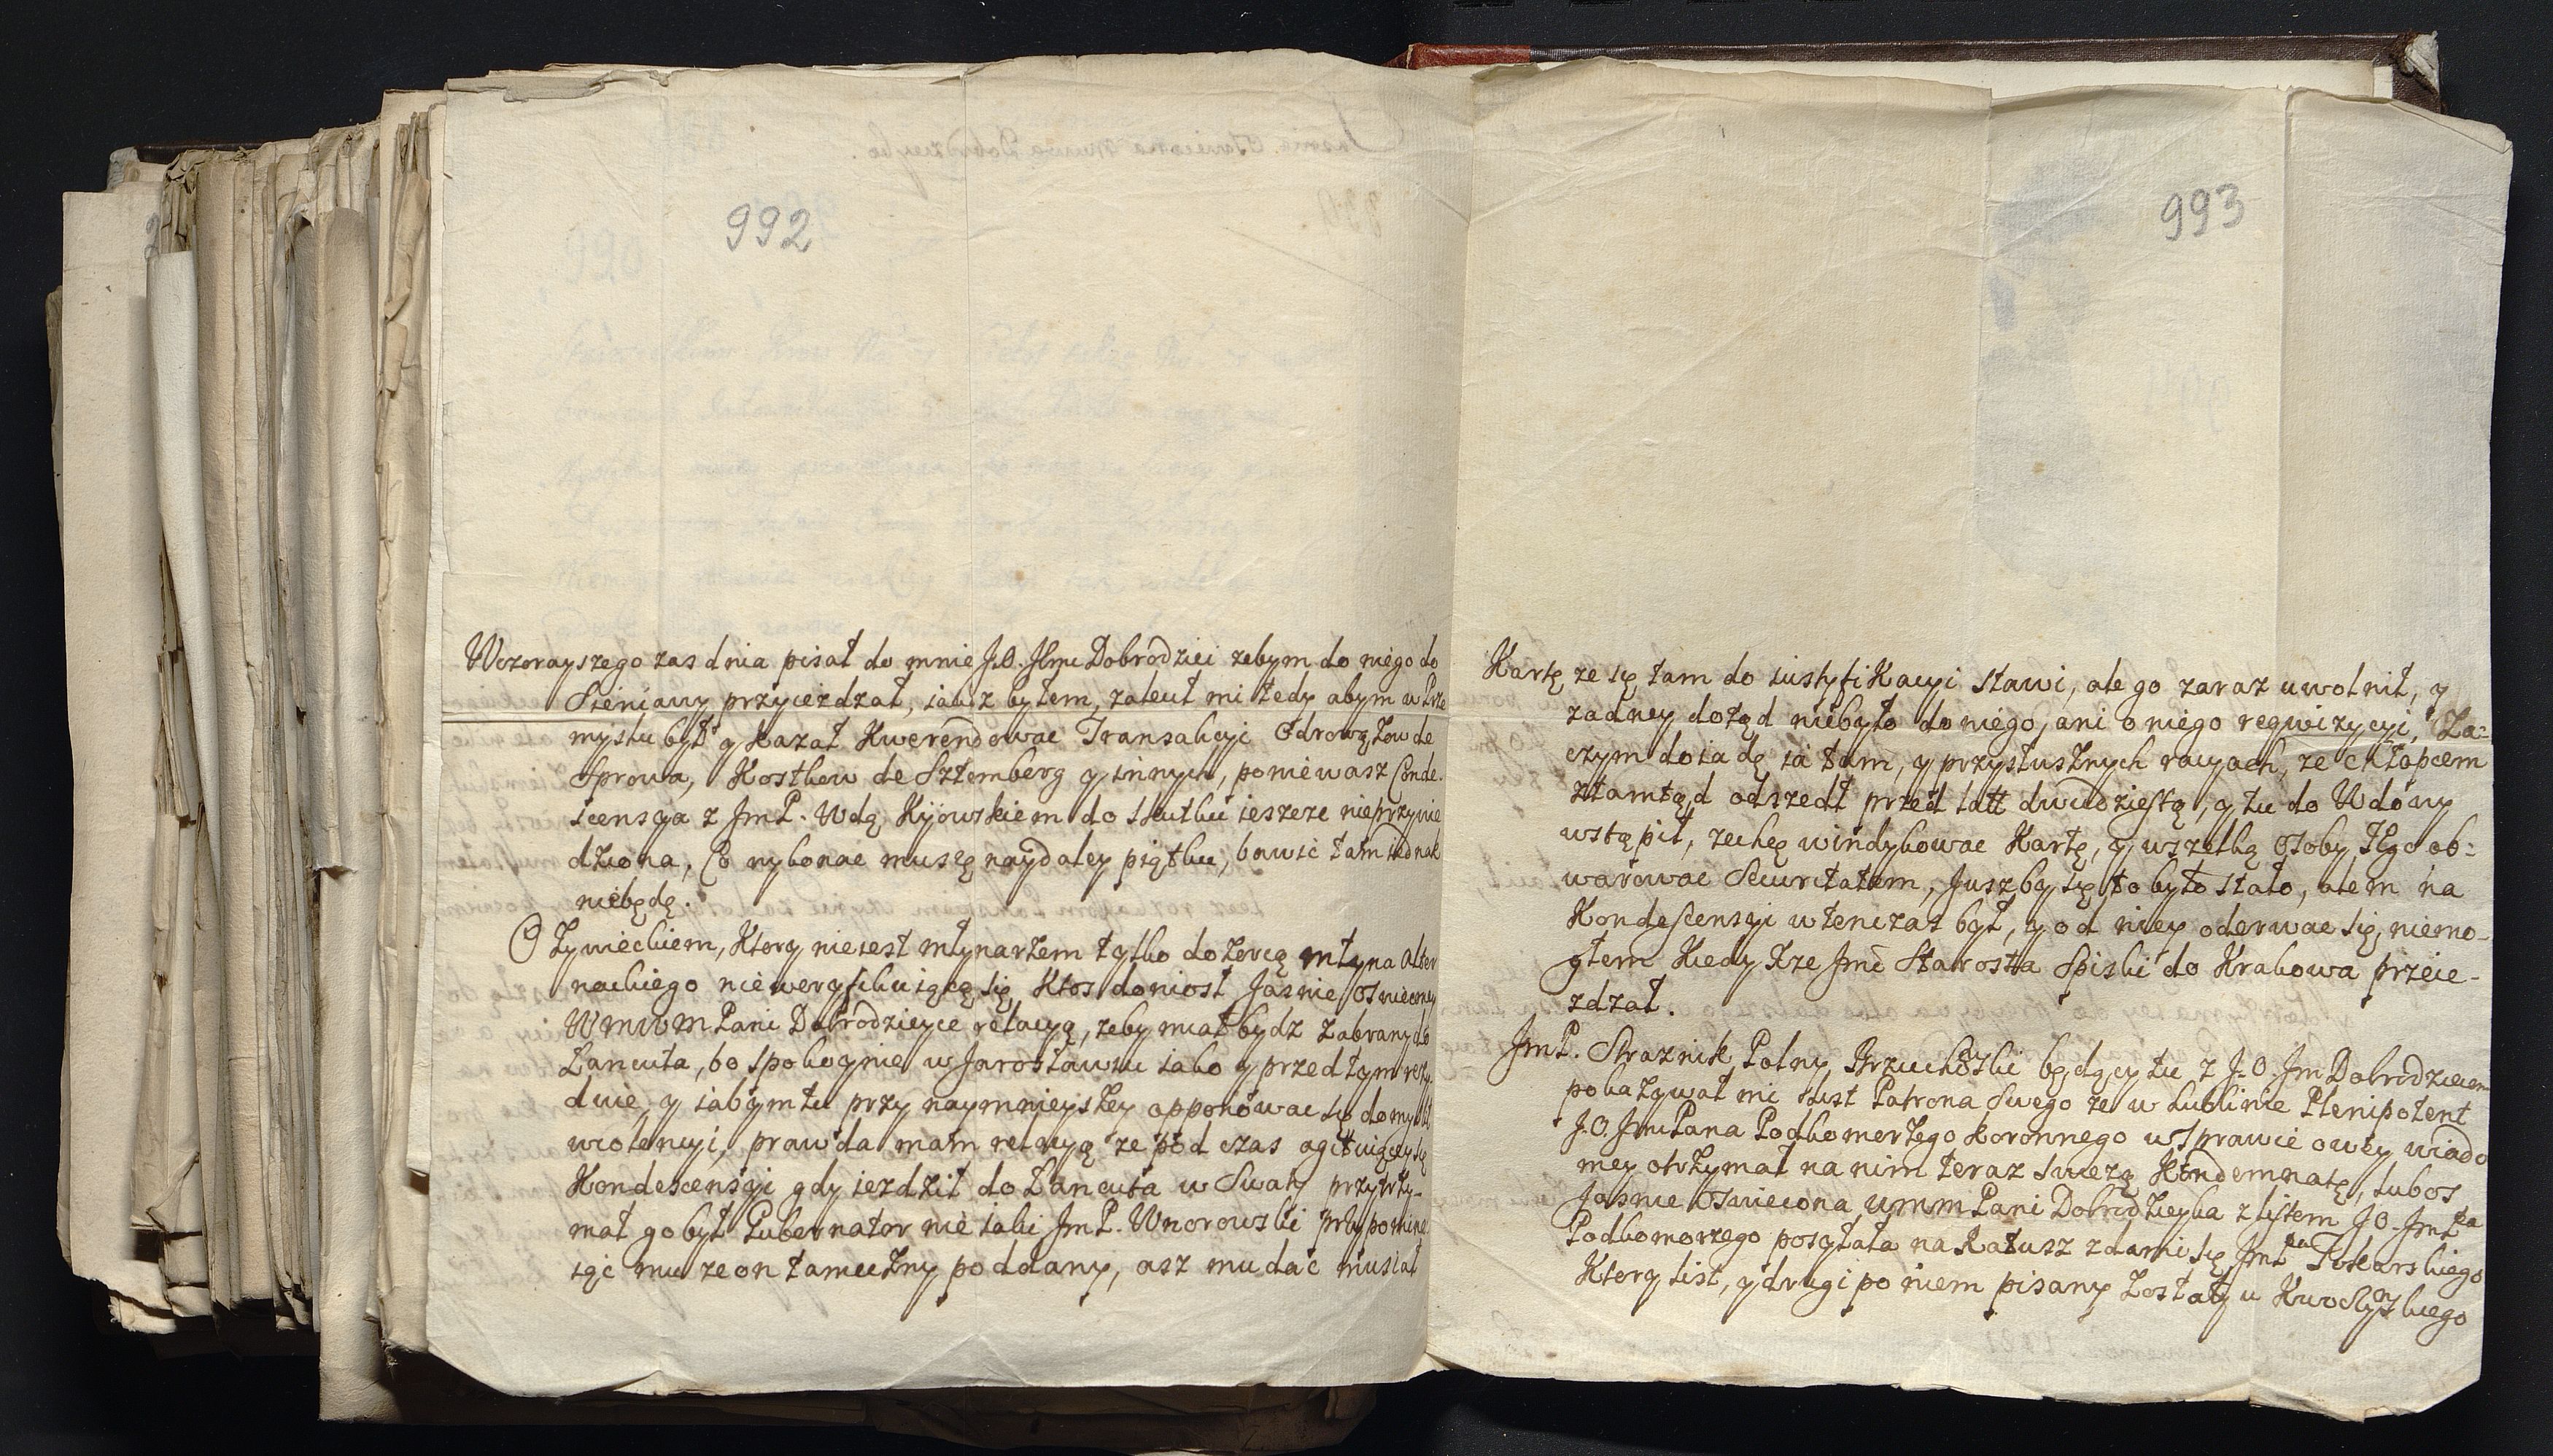 992
Wczorayszego zas dnia pisał do mnie J.O. Jlmc Dobrodziei zebym do niego do
Sieniawy przyiezdzał, iakoz byłem, zalecił mi tedy abym w Prze
myslu był y kazał Kwerendowac Transakcyi Odrowązow de
Sprowa, Kostkow de Sztemberg y innych, poniewasz Conde-
scensya z JmP. Wdą Kijowskiem do skutku ieszcze nieprzywie
dziona, Co wykonac muszę naydaley piątku, bawić tam iednak
niebędę.
O Zywieckiem, Ktory nieiest młynarzem tylko dozorcą młyna Alter
nackiego nieweryfikuiącą się Ktos doniosł Jasnie Oswieconey
WmWm Pani Dobrodzieyce relacyą, zeby miał bydz zabrany do
Łancuta, bo spokoynie w Jarosławiu iako y przed tym rezy
duie, y iabym tu przy naymnieyszey opponowac się domyslił
wiolencyi, prawda mam relacyą ze pod czas agituiącey się
Kondescensyi gdy iezdził do Łancuta w Swaty przytrzy-
mał go był Gubernator nieiaki JmP. Wnorowski przypomina
iąc mu ze on tameczny poddany, asz mu dać musiał
993
Kartę ze się tam do iustyfikacyi stawi, ale go zaraz uwolnił, y
zadney dotąd niebyło do niego, ani o niego reqwizycyi, Za-
czym doiadę ia tam, y przy słusznych racyach, ze chłopcem
ztamtąd odszedł przed latt dwudziestą, y tu do Wdowy
wstąpił, zechcę windykowac Kartę, y wszelką Osoby Jego ob-
warowac Securitatem, Jusz by się to było stało, alem na
Kondescensyi wtenczas był, y od niey oderwac się niemo-
głem Kiedy Xze Jmć Starosta Spiski do Krakowa przeie-
zdzał.
JmP. Straznik Polny Brzuchowski będący tu z J.O. Jm Dobrodzieiem
pokazywał mi list Patrona Swego ze w Lublinie Plenipotent
J.O. Jmci Pana Podkomorzego Koronnego w Sprawie owey wiado
mey otrzymał na nim teraz swiezą Kondemnatę, lubos
Jasnie Oswiecona WmmPani Dobrodzieyka z listem J.O. JmPa
Podkomorzego posyłała na Ratusz zdami się JmPa Tokarskiego
Ktory list, y drugi po niem pisany zostały u Kuroczyckiego